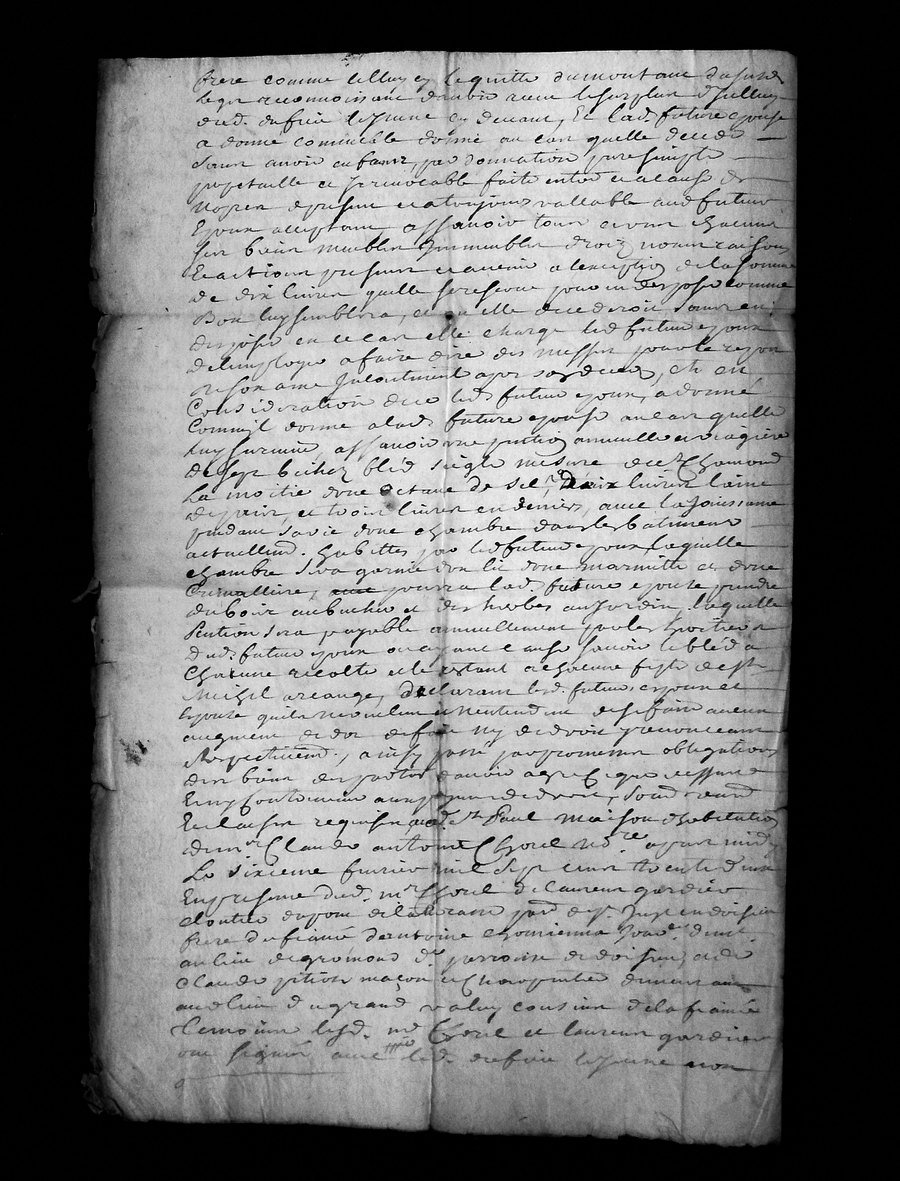 frere comme celluy cy le quitte du montant dususd.
legat reconnoissant davoir receu le surplus dicelluy
dud. defrie lejeune cy devant, Et lad. future epouse
a donné comme elle donne au cas quelle decede
sans avoir enfans, par donnation pure simple
perpetuelle et Irrevocable faite entre et a cause de
Nopces a present et a toujours vallable aud. futur
Epoux acceptant assavoir tous et uns chacuns
ses biens meubles Immeubles droits noms raisons
Et actions presents et avenir a lexception de la somme
de dix livres quelle se reserve pour en disposer comme
Bon luy semblera, et ou elle decederoit sans en
disposer en ce cas elle charge led. futur epoux
de lemployer a faire dire des messes pour le repos
de son ame Incontinent apres son deces, Et en
Consideration de ce led. futur epoux, a donné
Comme il donne a lad. future epouse au cas quelle
luy survive, assavoir une pention annuelle et viagere
de sept bichets bled seigle mesure de st. Chamond
La moitié dune de sel, deux livres laine
de païs, et trois livres en deniers, avec la Jouissance
pendant sa vie dune chambre dans les batiments
actuellemt. habittés par led. futur epoux laquelle
chambre sera garnie dun lit dune marmitte et dune
cramalliere, pourra lad. future epouse prendre
du bois au bucher et des herbes au Jardin, laquelle
Pention sera payable annuellement par les heritiers
dud. futur epoux ou ayant cause savoir le bled a
chacune recolte et le restant a chacune feste de st.
Michel archange, declarant lesd. futurs epoux et
Epouse quils ne veulent et Nentendent de se faire aucun
augment de dot ny de droit y renonceant
Respectivemt., ainsy passé par promesses obligations
des biens des parties
Et clauses requises aud. st. Paul maison dhabitation
de me. Claude antoine Thorel nore. apres midy
Le sixieme fevrier mil sept cent trente deux
En presence dud. me. Thorel de laurent gardier
cloutier du pont de la terrasse paroisse de st. Just en doisieu
frere du fiancé dantoine
au lieu de gremond de. parroisse de doisieu, et de
Claude pition maçon et Charpentier demeurant
au lieu du grand valuy cousin de la fiancée
Temoins lesd. me. Thorel et laurent gardier
ont signés avec led. defrie lejeune non